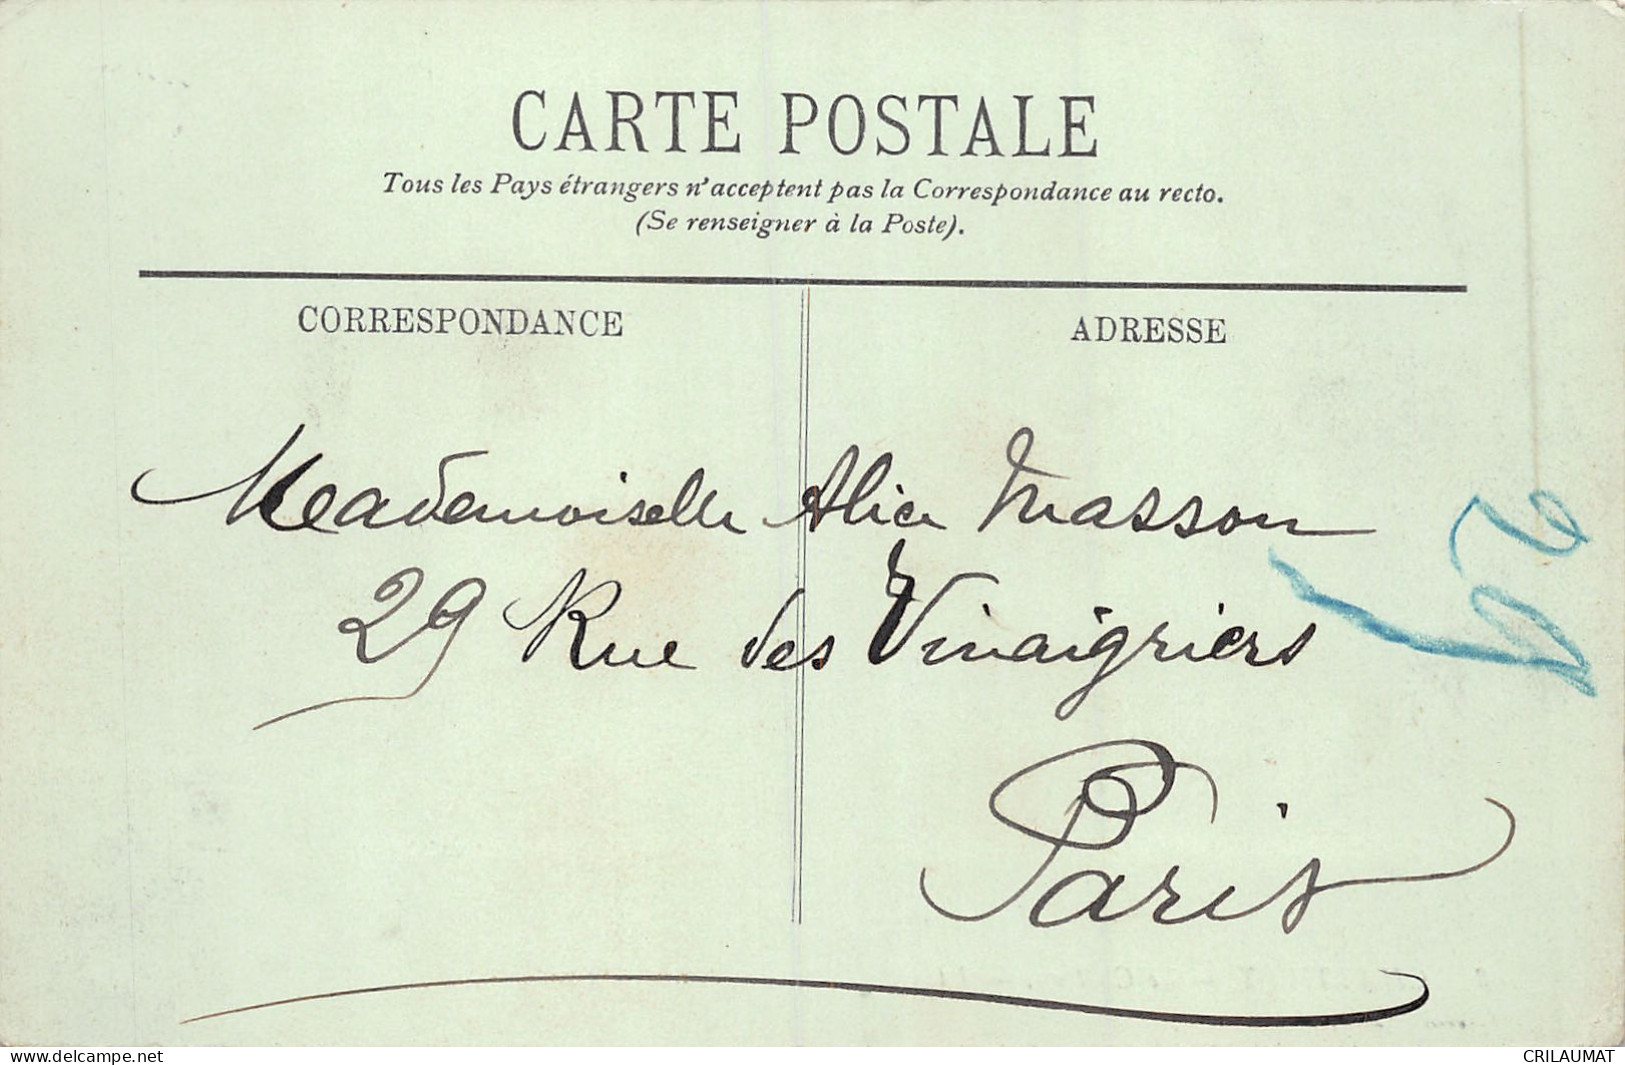 CARTE POSTALE
Tous les Pays étrangers n'acceptent pas la Correspondance au recto.
(Se renseigner à la Poste).
CORRESPONDANCE
ADRESSE
Mademoiselle Alice Masson
29 Rue des Vinaigriers
Paris
www.delcampe.net
CRILAUMAT